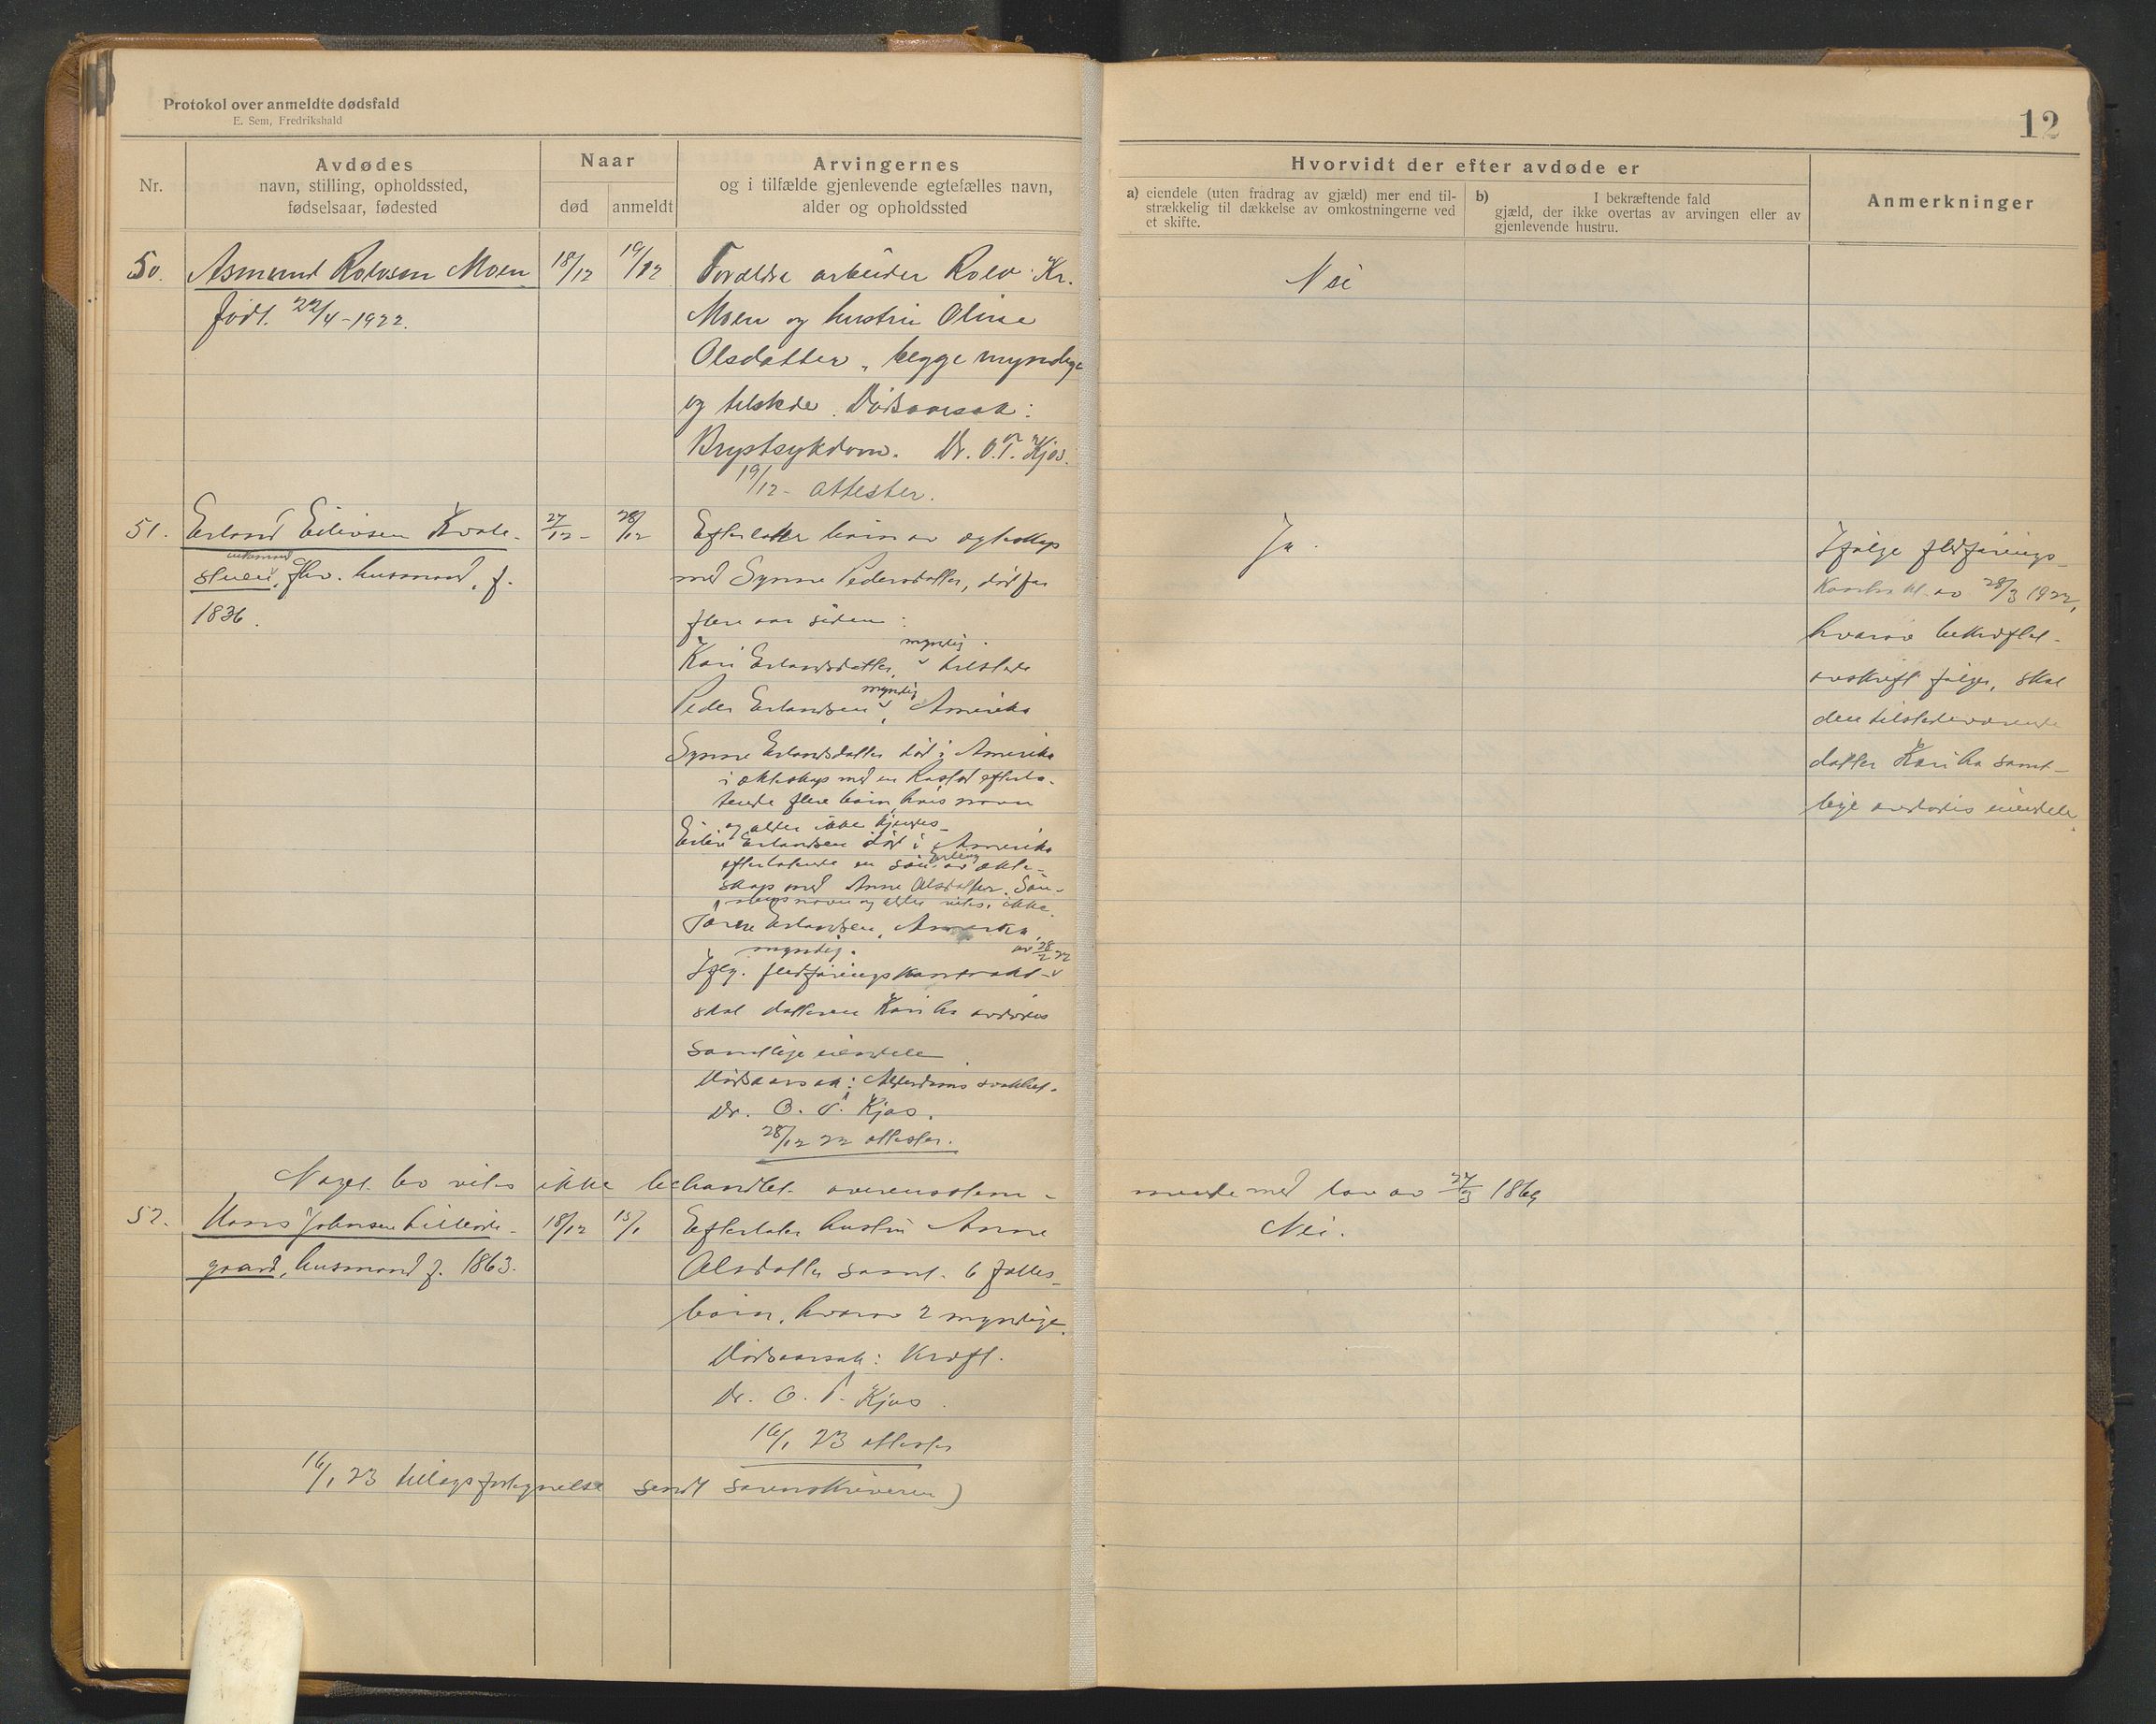 Protokol over anmeldte dødsfald
E. Sem, Fredrikshald
12
Nr.
Avdødes
navn, stilling, opholdssted,
fødselsaar, fødested
Naar
død
anmeldt
Arvingernes
og i tilfælde gjenlevende egtefælles navn,
alder og opholdssted
Hvorvidt der efter avdøde er
a) eiendele (uten fradrag av gjæld) mer end til-
strækkelig til dækkelse av omkostningerne ved
et skifte.
b) I bekræftende fald
gjæld, der ikke overtas av arvingen eller av
gjenlevende hustru.
Anmerkninger
50. Asmund Rolvsen Moen
født 22/4-1922.
18/12
19/12
Forældre arbeider Rolv Kr.
Moen og hustru Oline
Olsdatter, begge myndige
og tilstede. Dødsaarsak:
Brystsykdom. Dr. O. T. Kjos.
19/12- attester.
Nei
51. Erland Eilivsen Kvale-
stuen, enkemand, fhv. husmand, f.
1836.
27/12-
28/12
Efterlater barn av egteskap
med Synne Pedersdatter, død for
flere aar siden:
Kari Erlandsdatter, myndig, tilstede
Peder Erlandsen, myndig, Amerika
Synne Erlandsdatter død i Amerika
i ekteskap med en efterla-
tende flere barn, hvis navn
og alder ikke kjendes
Eiliv Erlandsen død i Amerika
efterlatende en søn av ekte-
skap med Anne Olsdatter. Søn-
nens navn og alder vites ikke.
Erlandsen, Amerika,
myndig.
Ifølg. fledføringskontrakt av 28/2 22
skal datteren Kari ha avdødes
samtlige eiendele
Dødsaarsak: Alderdoms svakhet.
Dr. O. T. Kjos.
28/12 22 attester.
Ja.
Ifølge fledførings-
kontrakt av 28/3 1922,
hvorav bekræftet
avskrift følger, skal
den tilstedeværende
datter Kari ha samt-
lige avdødes eiendele.
Noget bo vites ikke behandlet overensstem-
mende med lov av 27/3 1869
52. Hans Johnsen Lillevde-
gaard, husmand f. 1863.
18/12
15/1
Efterlater hustru Anne
Olsdatter samt 6 fælles-
barn, hvorav 2 myndige.
Dødsaarsak: Kræft.
Dr. O. T. Kjos.
16/1 23 attester
Nei.
16/1 23 tillægsfortegnelse sendt sorenskriveren)